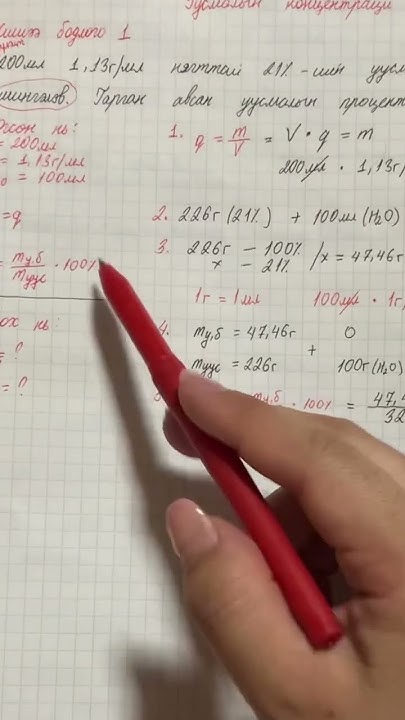 Уусмалын концентраци
бодлого 1
200мл 1,13г/мл нягттай 21% -ийн
шингэлэв. Гарган авсан уусмалын процент
нь:
= 200мл
= 1,13г/мл
= 100мл
= q
= mу.б / mуус · 100%
нь:
= ?
= ?
1. q = m/V = V · q = m
200мл · 1,13г
2. 226г (21%) + 100мл (H2O)
3. 226г – 100%
x – 21% / x = 47,46г
1г = 1мл 100мл · 1г,
4. mу,б = 47,46г 0
+
mуус = 226г 100г (H2O)
mу.б · 100% = 47,4 / 32